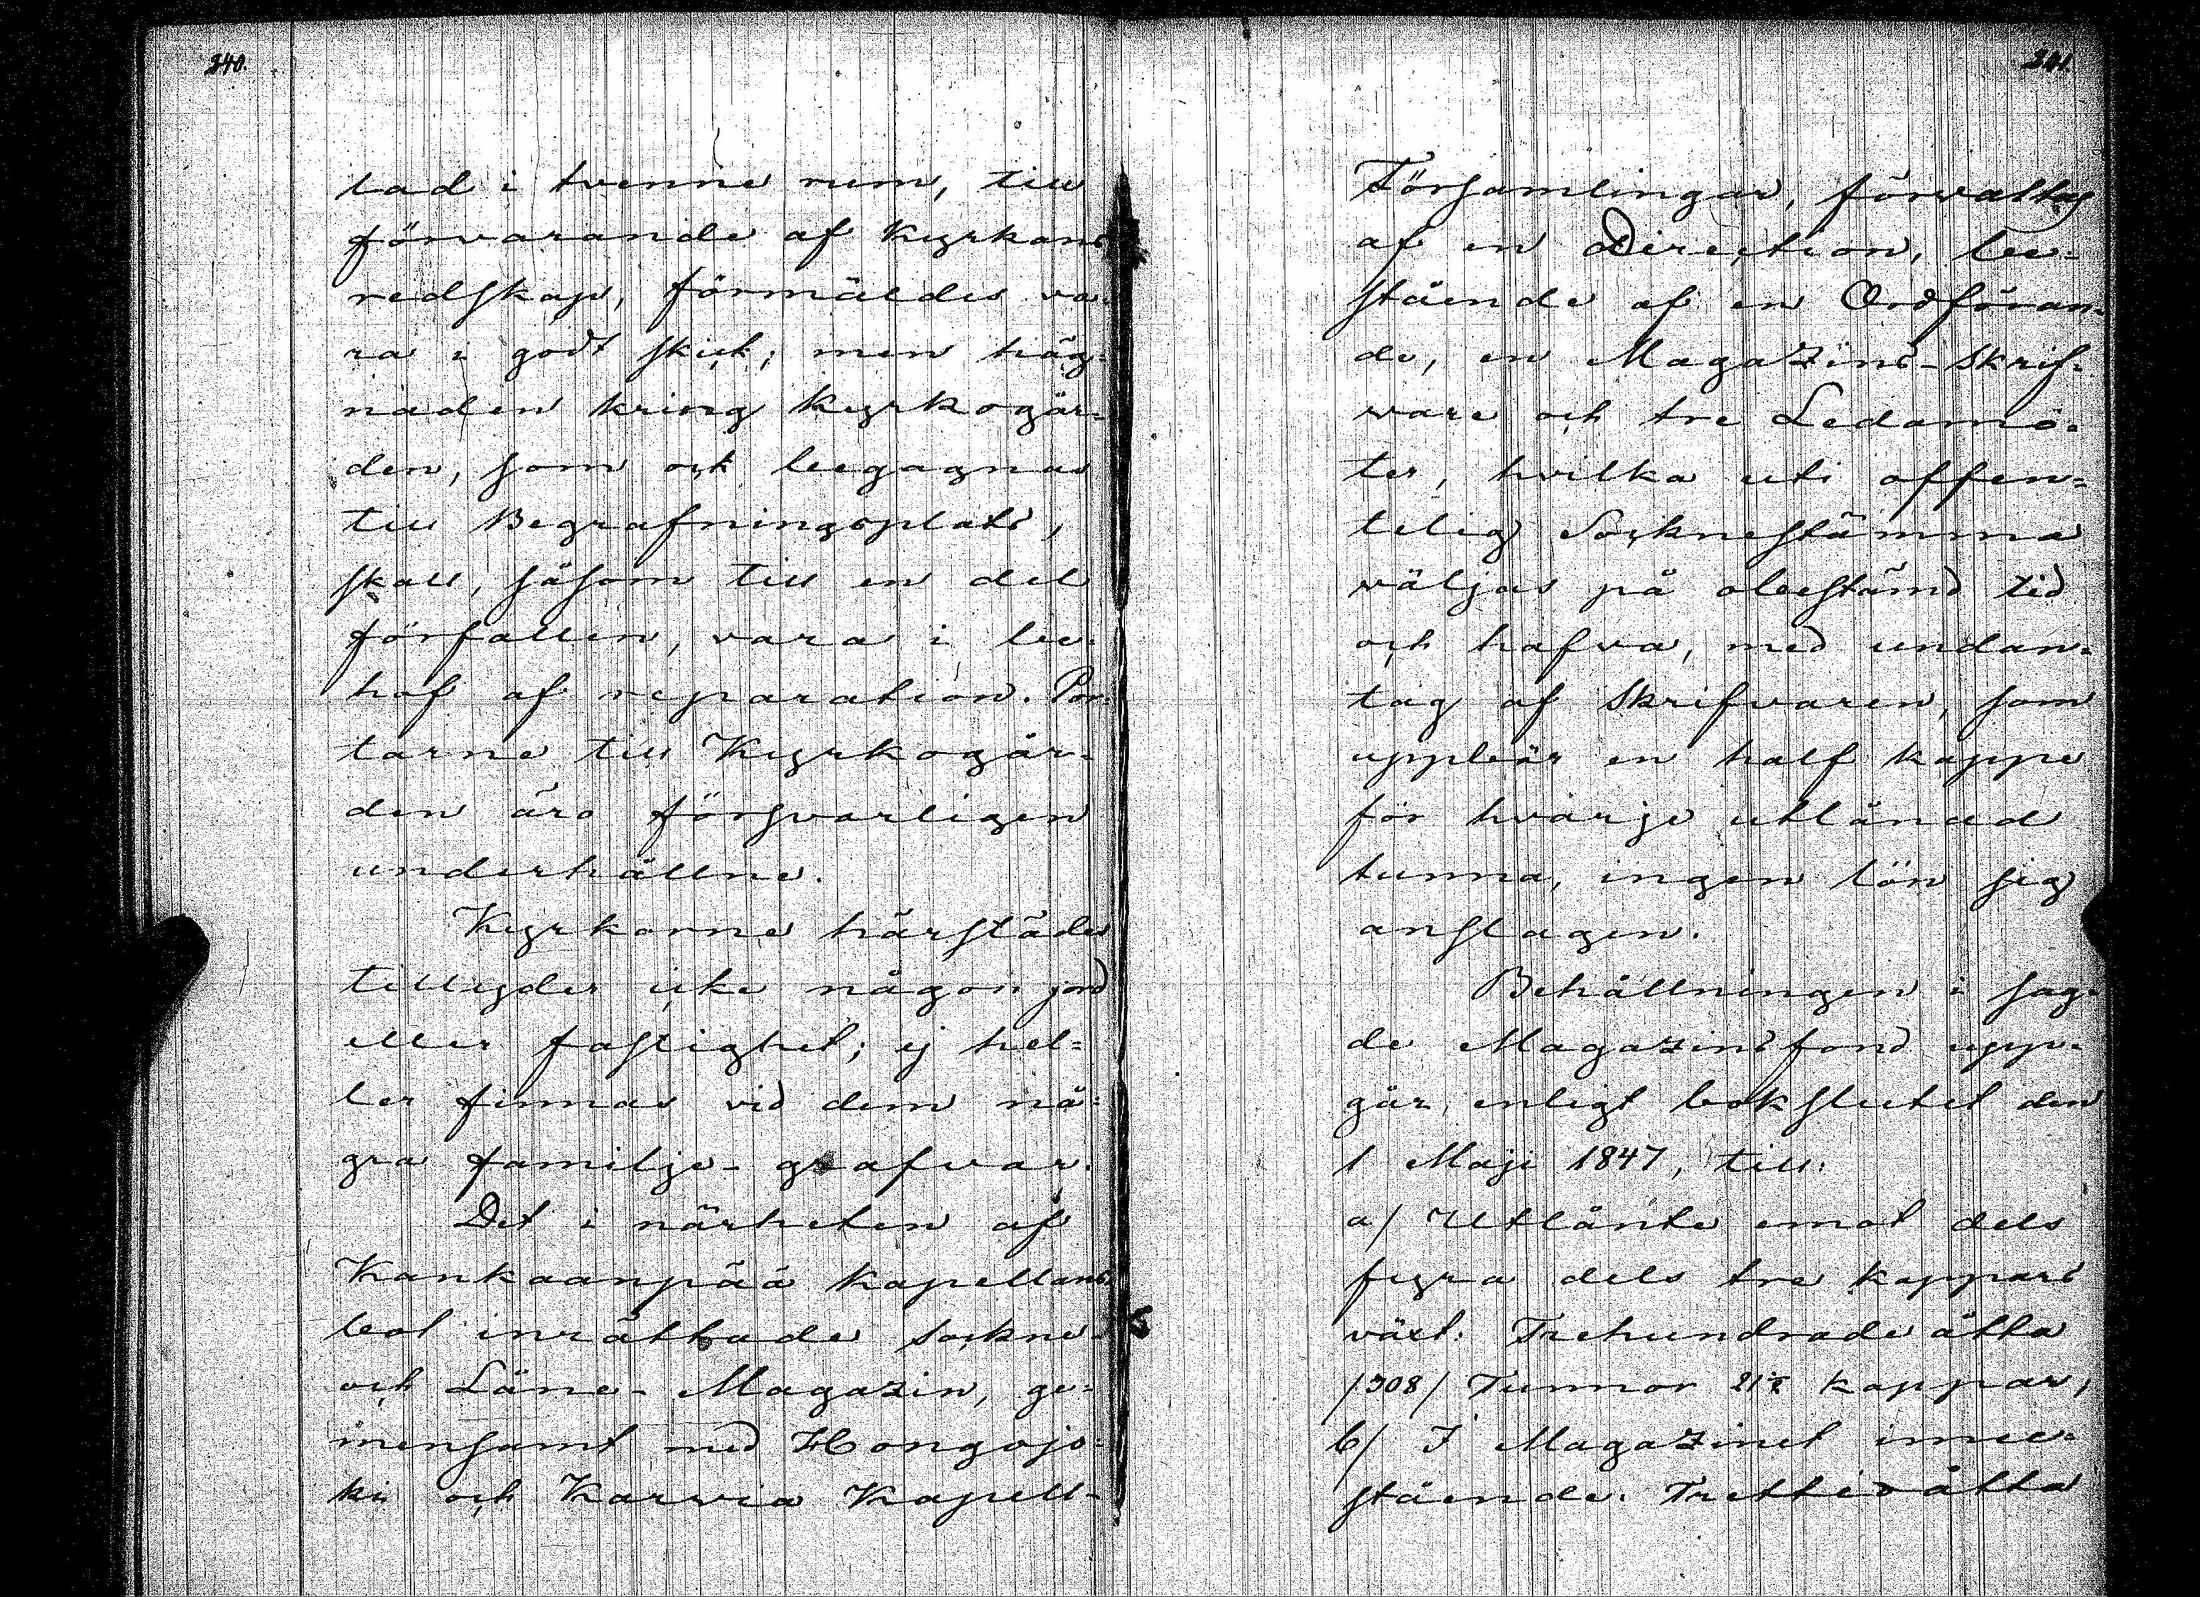 240.
lad i tvenne rum, till
förvarande af Kyrkans
redskap, förmäldes va-
ra i godt skick; men häg-
naden kring kyrkogår-
den, som ock begagnas
till Begrafningsplats,
skall, såsom till en del
förfallen, vara i be-
hof af reparation. Por-
tarne till Kyrkogår-
den äro försvarligen
underhållne.
Kyrkorne härstädes
tillyder icke någon jord
eller fastighet; ej hel-
ler finnas vid dem nå-
gra familje-grafvar.
Det i närheten af
Kankaanpää Kapellans-
bol inrättade sockne-
och Låne-Magazin, ge-
mensamt med Hongojo-
ki och Karvia Kapell-
241.
Församlingar, förvaltas
af en Direction, be-
stående af en Ordföran-
de, en Magazins-skrif-
vare och tre Ledamö-
ter, hvilka uti offen-
telig Socknestämma
väljas på obestämd tid
och hafva, med undan-
tag af Skrifvaren, som
uppbär en half kappe
för hvarje utlånad
tunna, ingen lön sig
anslagen.
Behållningen i sag-
de Magazinsfond upp-
går, enligt bokslutet den
1 Maji 1847, till:
a/ Utlånte emot dels
fyra dels tre kappars
växt: Trehundrade åtta
/308/ Tunnor kappar,
b/ I Magazinet inne-
stående: Trettioåtta